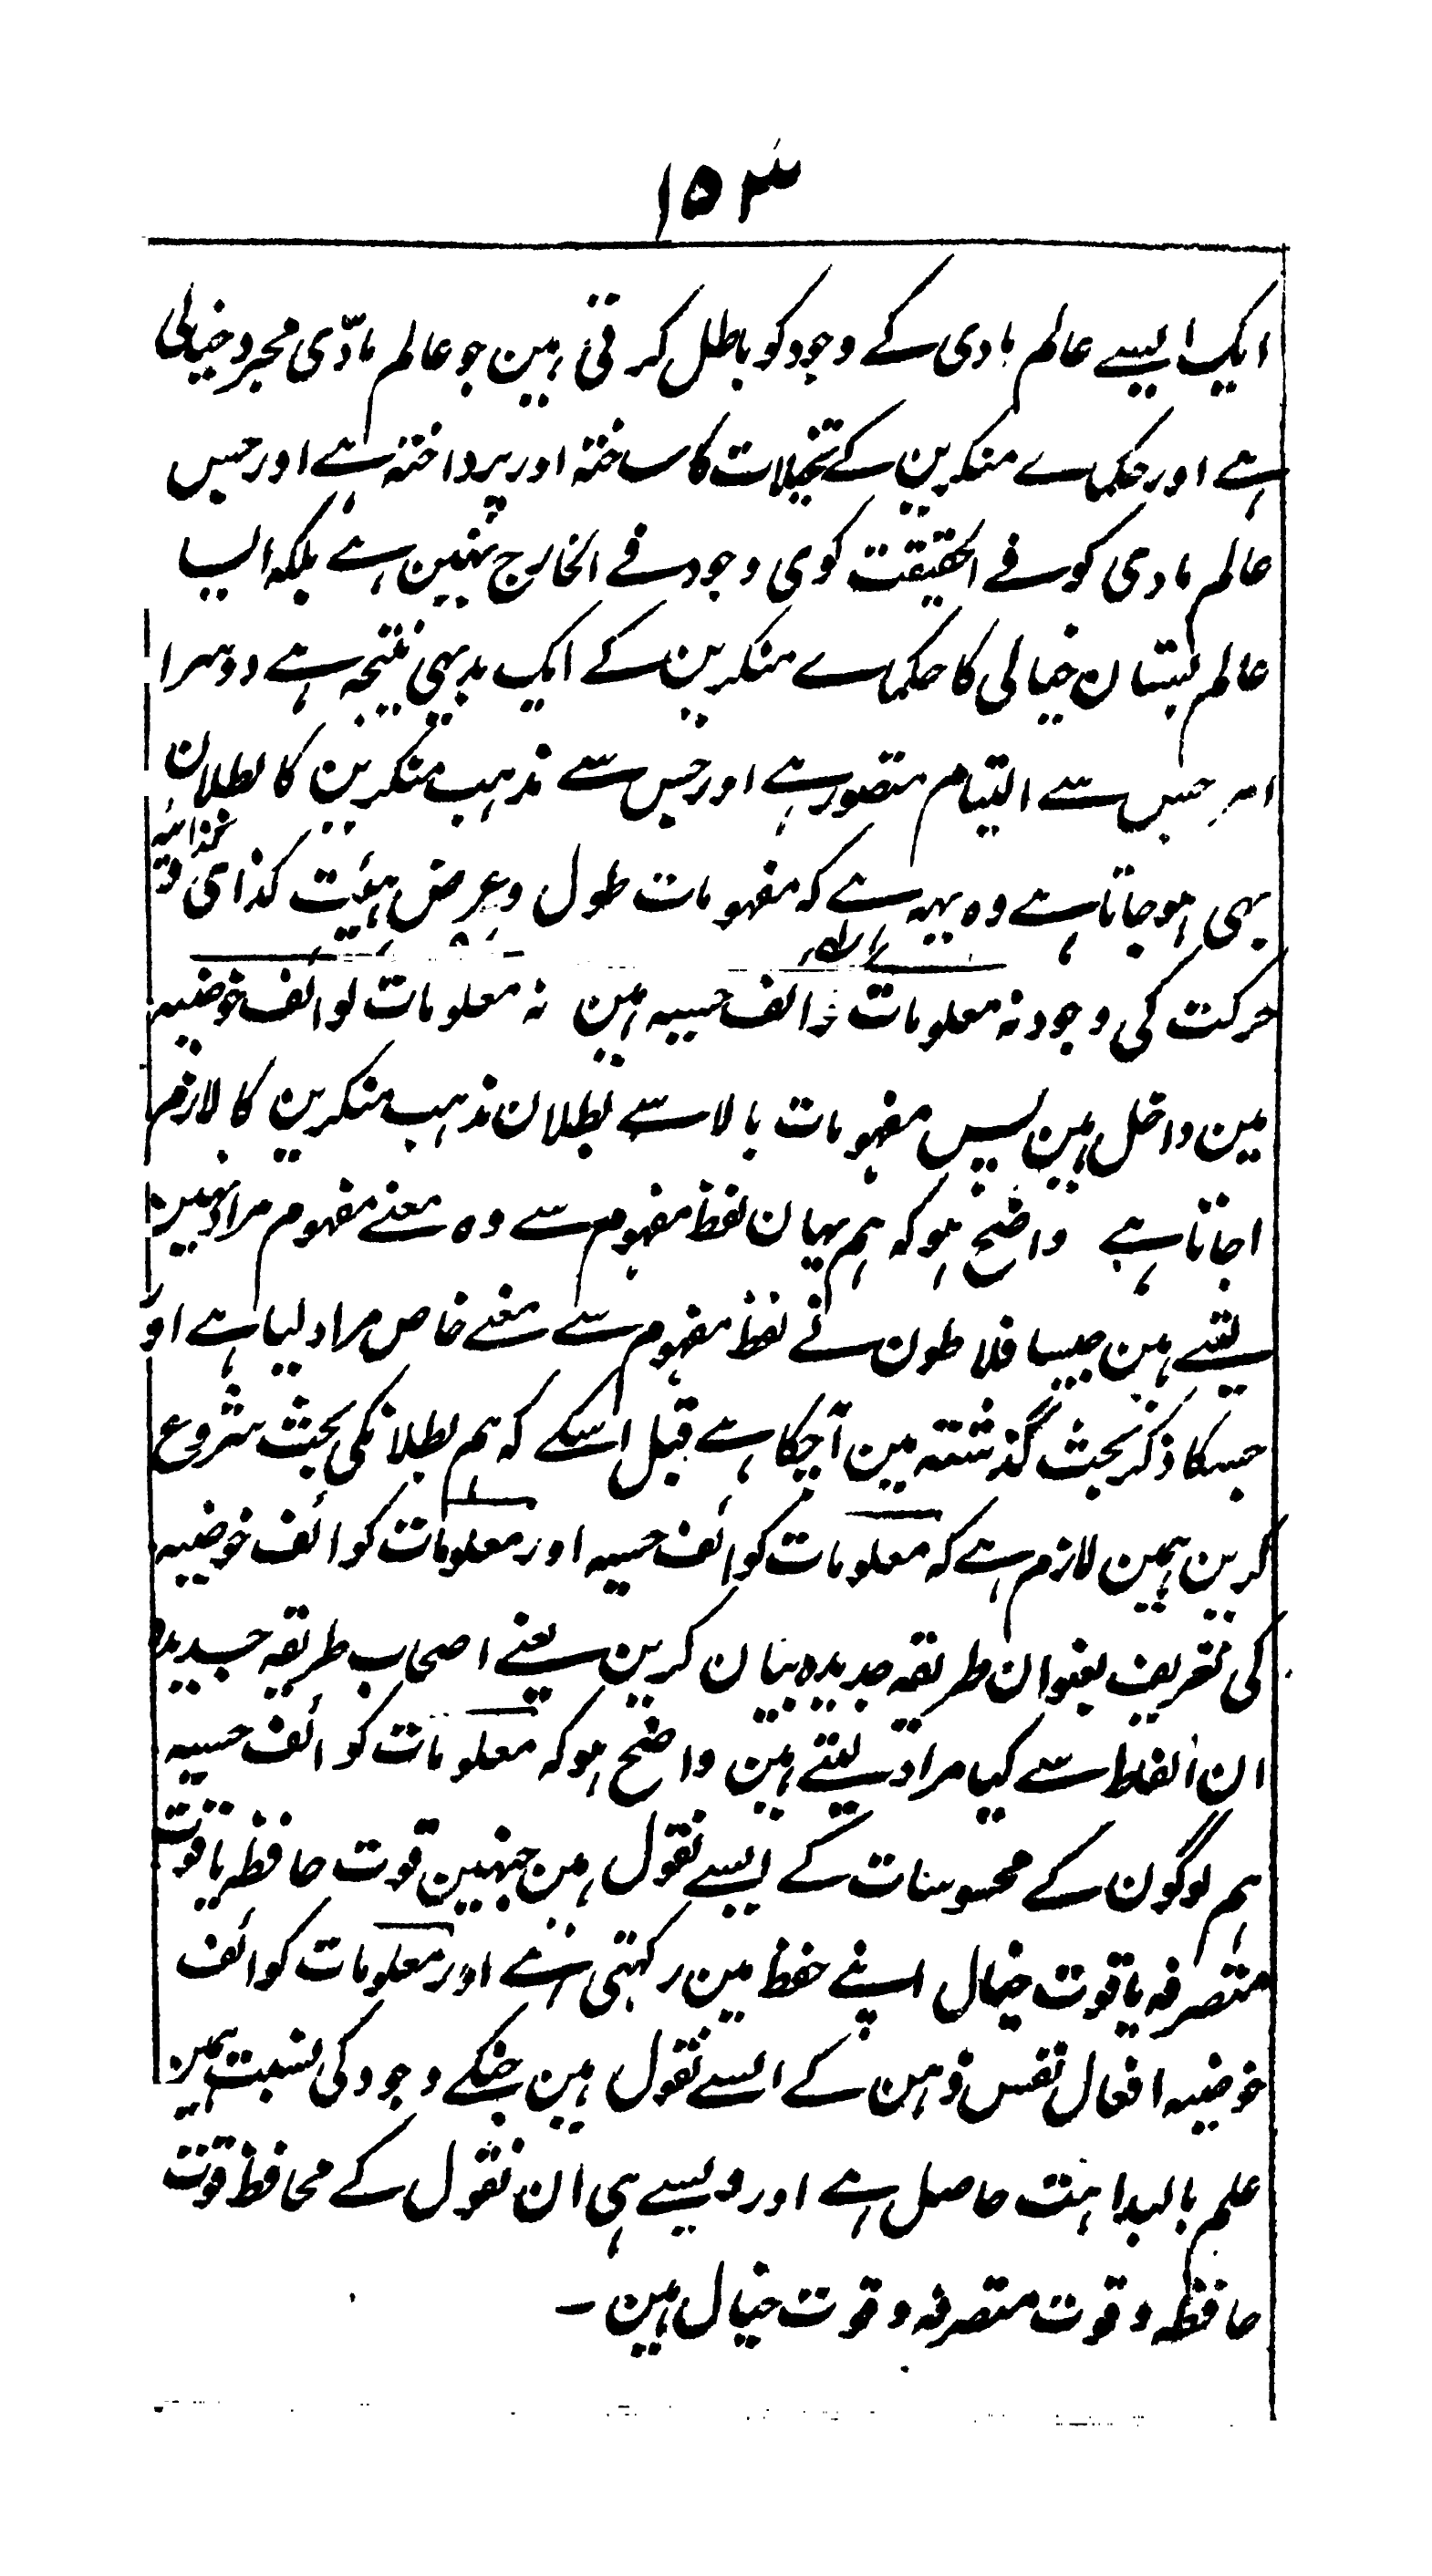 ۱۵۳
ایک ایسے عالم مادی کے وجود کو باطل کرتی ہین جو عالم مادّی مجرد خیالی
ہے اور حکماے منکرین کے تخیلات کا ساختہ اور پرداختہ ہے اور جس
عالم مادی کو فے الحقیقت کوی وجود فے الخارج نہین ہے بلکہ ایسا
عالم بستان خیالی کا حکماے منکرین کے ایک بدیہی نتیجہ ہے دوسرا
امر جس سے التیام متصور ہے اور جس سے مذہب منکرین کا بطلان
بہی ہوجاتا ہے وہ یہہ ہے کہ مفہومات طول و عرض ہیئت کذای و
حرکت کی وجود نہ معلومات کوائف حسیہ ہین نہ معلومات کوائف خوضیہ
مین داخل ہین پس مفہومات بالا سے بطلان مذہب منکرین کا لازم
اجاتا ہے واضح ہو کہ ہم یہان لفظ مفہوم سے وہ معنے مفہوم مراد نہین
لیتے ہین جیسا فلاطون نے لفظ مفہوم سے معنے خاص مراد لیا ہے او
جسکا ذکر بحث گذشتہ مین آچکا ہے قبل اسکے کہ ہم بطلانکی بحث شروع
کرین ہمین لازم ہے کہ معلومات کوائف حسیہ اور معلومات کوائف خوضیہ
کی تعریف بعنوان طریقہ جدیدہ بیان کرین یعنے اصحاب طریقہ جدیدہ
ان الفاظ سے کیا مراد لیتے ہین واضح ہو کہ معلومات کوائف حسیہ
ہم لوگون کے محسوسات کے ایسے نقول ہین جنہین قوت حافظہ یا قوت
متصرفہ یا قوت خیال اپنے حفظ مین رکہتی ہے اور معلومات کوائف
خوضیہ افعال نفس ذہن کے ایسے نقول ہین جنکے وجود کی نسبت ہمین
علم بالبداہت حاصل ہے اور ویسے ہی ان نقول کے محافظ قوت
حافظہ و قوت متصرفہ و قوت خیال ہین ۔